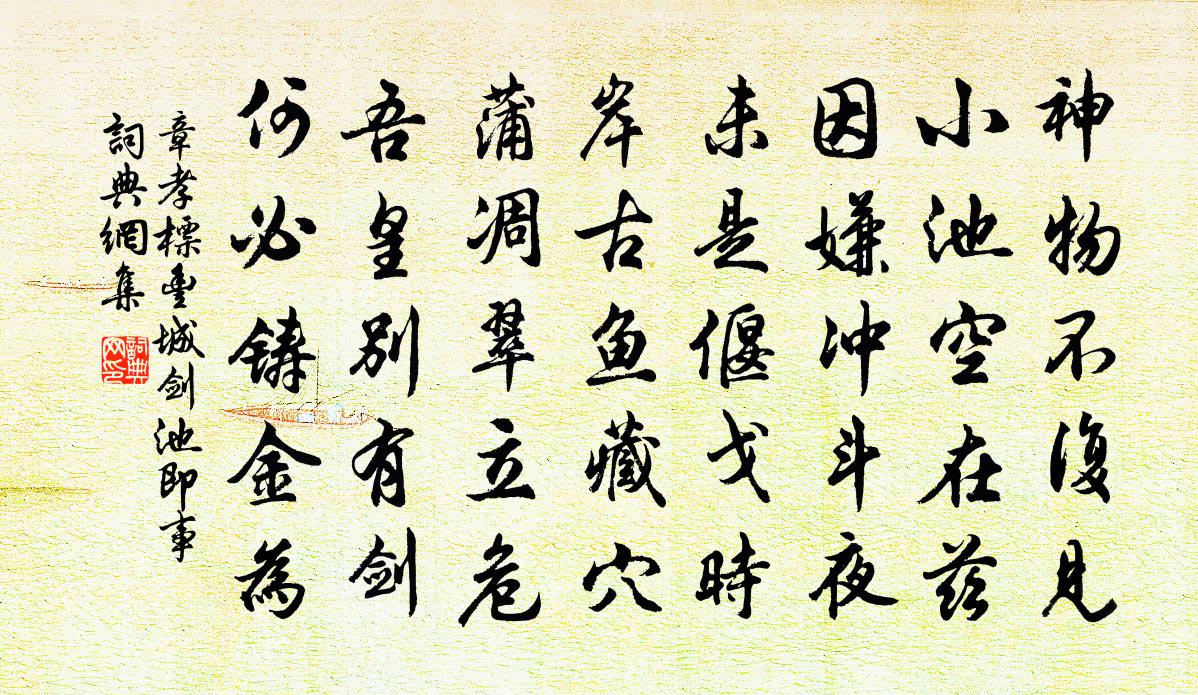 神物不復見
小池空在茲
因嫌冲斗夜
未是偃戈時
岸古魚藏穴
蒲凋翠立危
吾皇別有剑
何必铸金為
章孝標豊城剑池即事
詞典網集
詞典网印